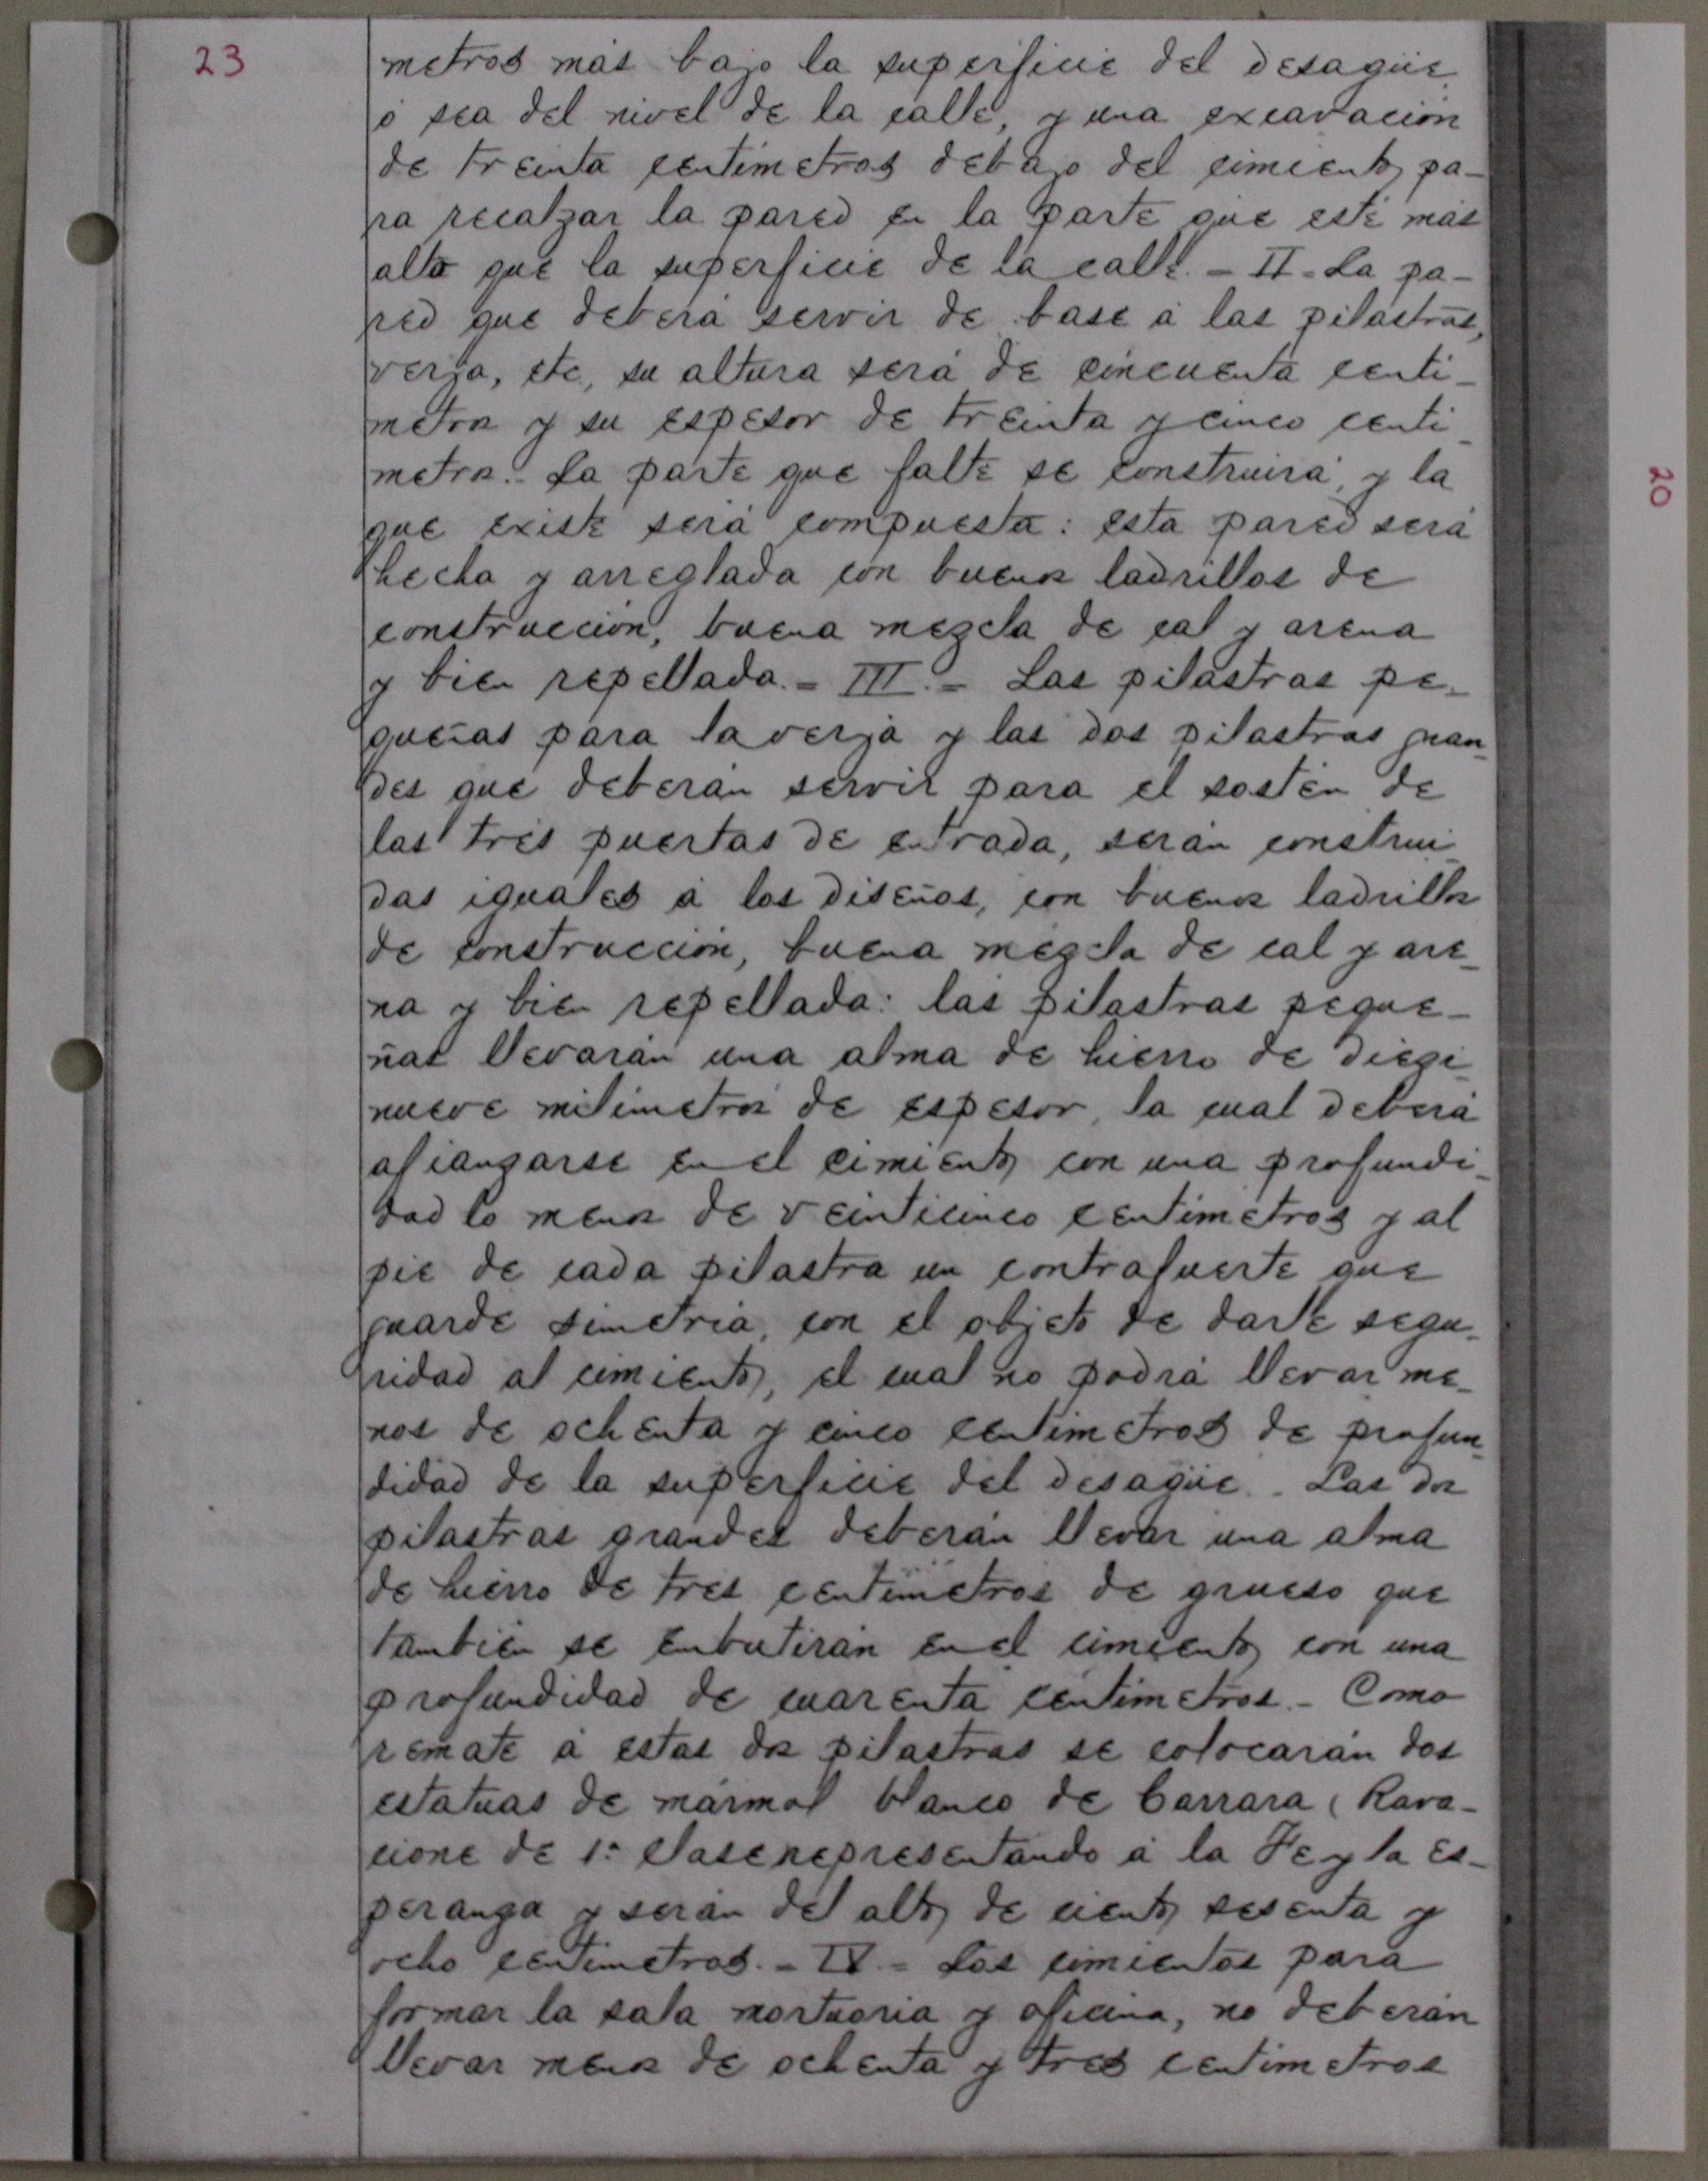 23
metros más bajo la superficie del desagüe
ó sea del nivel de la calle, y una excavación
de treinta centímetros debajo del cimiento, pa-
ra recalzar la pared en la parte que esté más
alta que la superficie de la calle. - II - La pa-
red que deberá servir de base á las pilastras,
verja, etc., su altura será de cincuenta centí-
metros y su espesor de treinta y cinco centí-
metros.- La parte que falte se construirá, y la
que existe será compuesta: esta pared será
hecha y arreglada con buenos ladrillos de
construcción, buena mezcla de cal y arena
y bien repellada. - III. - Las pilastras pe-
queñas para la verja y las dos pilastras gran-
des que deberán servir para el sostén de
las tres puertas de entrada, serán construi-
das iguales á los diseños, con buenos ladrillos
de construcción, buena mezcla de cal y are-
na y bien repellada: las pilastras peque-
ñas llevarán una alma de hierro de diezi-
nueve milímetros de espesor, la cual deberá
afianzarse en el cimiento con una profundi-
dad lo menos de veinticinco centímetros y al
pie de cada pilastra un contrafuerte que
guarde simetría, con el objeto de darle segu-
ridad al cimiento, el cual no podrá llevar me-
nos de ochenta y cinco centímetros de profun-
didad de la superficie del desagüe. - Las dos
pilastras grandes deberán llevar una alma
de hierro de tres centímetros de grueso que
también se embutirán en el cimiento con una
profundidad de cuarenta centímetros. - Como
remate á estas dos pilastras se colocarán dos
estatuas de mármol blanco de Carrara (Rava-
cione de 1ª clase representando á la Fe y la Es-
peranza y serán del alto de ciento sesenta y
ocho centímetros. - IV - Los cimientos para
formar la sala mortuoria y oficina, no deberán
llevar menos de ochenta y tres centímetros
20